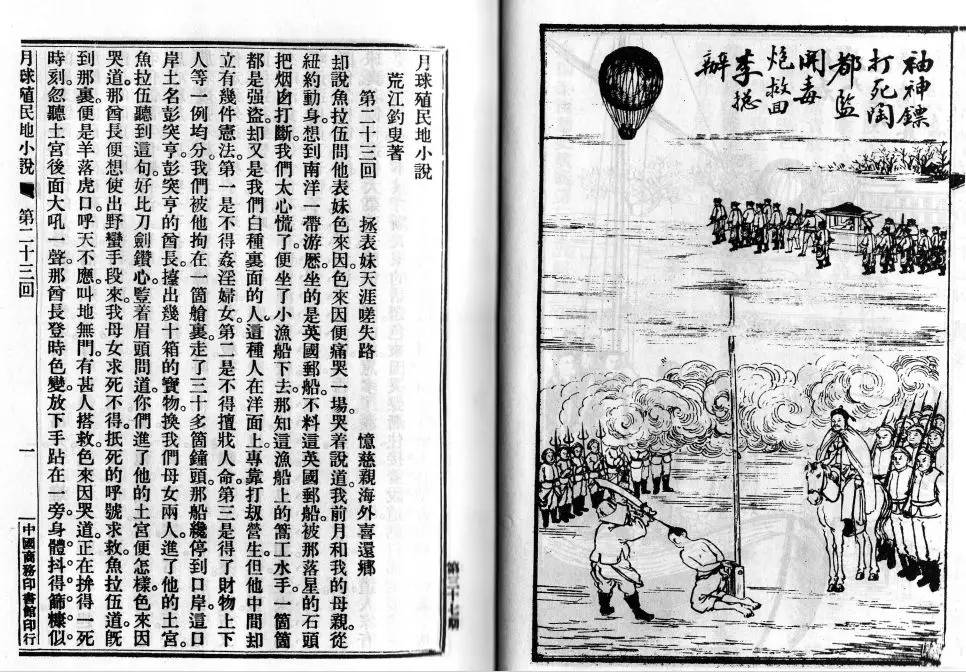 袖神鏢
打死陶
都監
開毒
炮救回
李捴
辦
第三十七期
月球殖民地小說
荒江釣叟著
第二十三回 拯表妹天涯嗟失路 憶慈親海外喜還鄉
却說魚拉伍問他表妹色來因。色來因便痛哭一場。哭着說道。我前月和我的母親。從
紐約動身。想到南洋一帶游歷。坐的是英國郵船。不料這英國郵船被那落星的石頭
把烟囱打斷。我們太心慌了。便坐了小漁船下去。那知這漁船上的篙工水手。一箇箇
都是强盜。却又是我們白種裏面的人。這種人在洋面上。專靠打刼營生。但他中間却
立有幾件憲法。第一是不得姦淫婦女。第二是不得擅戕人命。第三是得了財物。上下
人等。一例均分。我們被他拘在一箇艙裏。走了三十多箇鐘頭。那船纔停到口岸。這口
岸土名彭突亨。彭突亨的酋長。擡出幾十箱的寶物。換我們母女兩人。進了他的土宮。
魚拉伍聽到這句。好比刀劍鑽心。豎着眉頭問道。你們進了他的土宮。便怎樣。色來因
哭道。那酋長便想使出野蠻手段來。我母女求死不得。抵死的呼號求救。魚拉伍道。旣
到那裏。便是羊落虎口。呼天不應。叫地無門。有甚人搭救。色來因哭道。正在拚得一死
時刻。忽聽土宮後面大吼一聲。那酋長登時色變。放下手跕在一旁。身體抖得篩糠似
月球殖民地小說 第二十三回 一 中國商務印書館印行